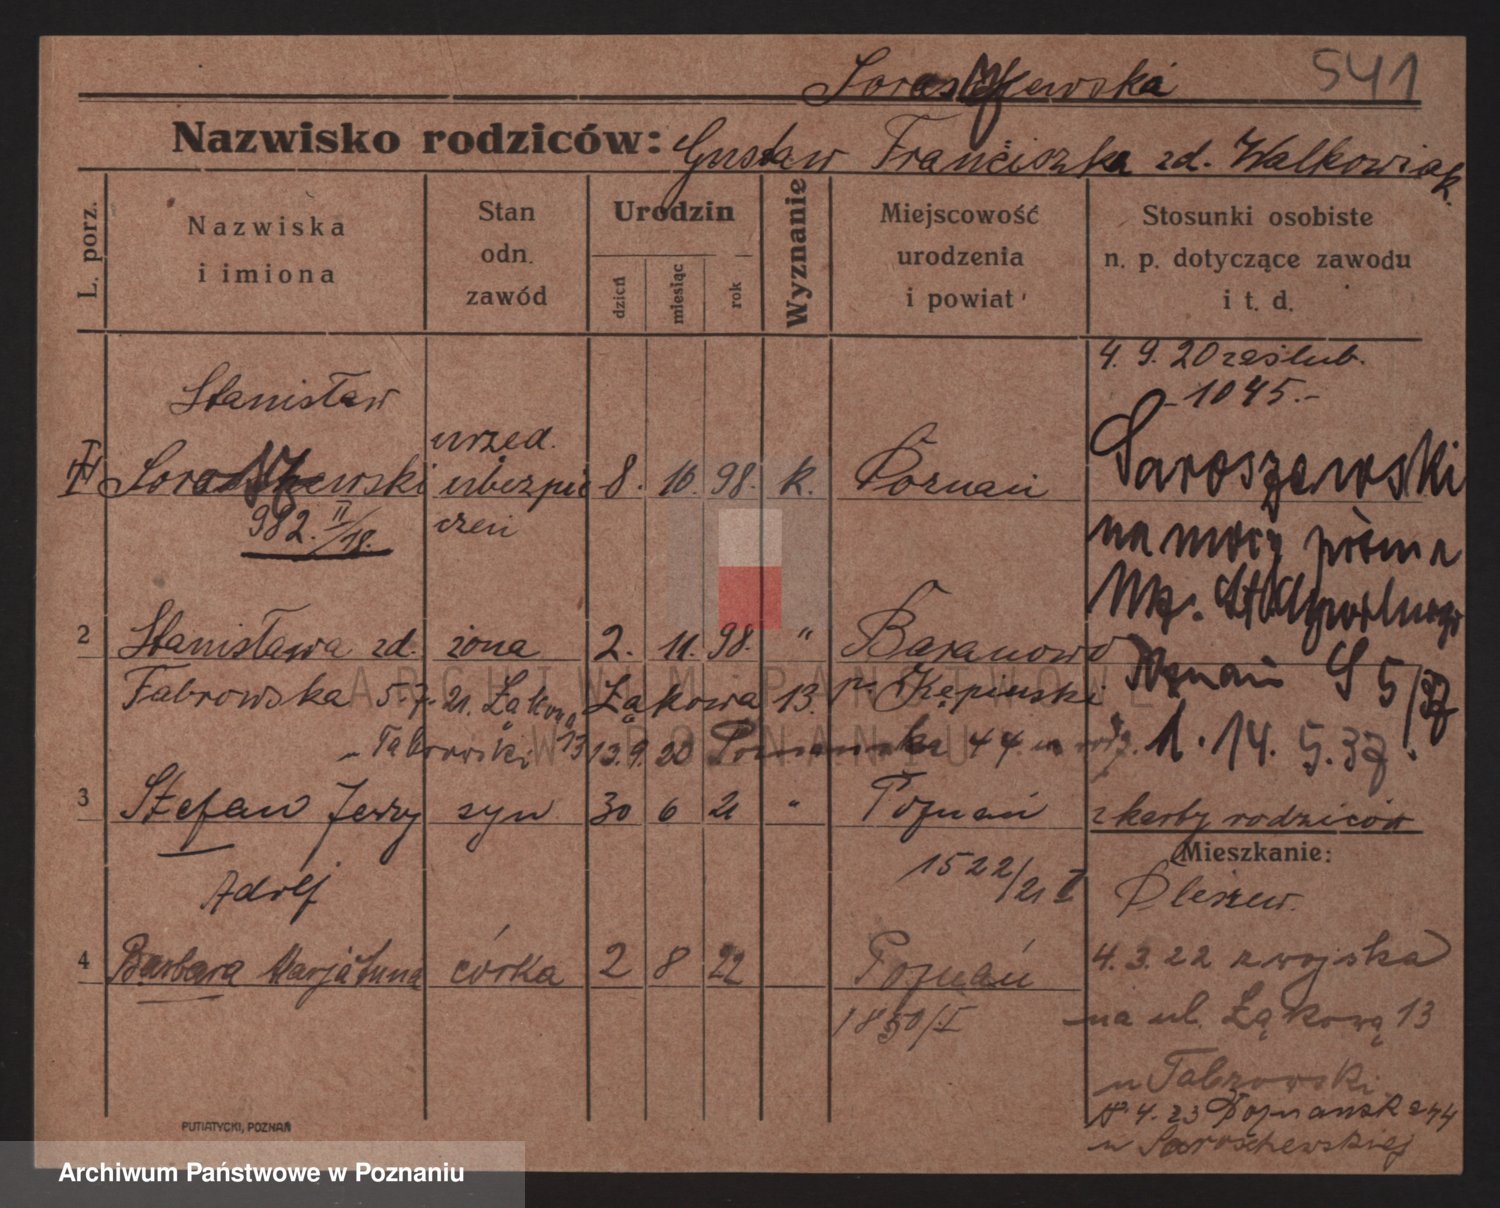 541
Nazwisko rodziców: Gustaw Franciszka zd. Walkowiak
L. porz.
Nazwiska i imiona
Stan odn. zawód
Urodzin
dzień
miesiąc
rok
Wyznanie
Miejscowość urodzenia i powiat
Stosunki osobiste n. p. dotyczące zawodu i t. d.
4. 9. 20 zaślub.
- 1045.-
Stanisław
urzęd. ubezpieczeń 8. 10. 98. k. Poznań
982. II/18.
Saroszewski
na mocy pisma
Poznań
1. 14. 5. 37.
2 Stanisława zd. żona 2. 11. 98. " Baranowo
Fabrowska 5.7. 21. Łąkowa 13. p. Kępiński
13 13. 9. 20 44
3 Stefan Jerzy syn 30 6 21 " Poznań
z karty rodziców
Adolf
1522/21 I
Mieszkanie:
Pleszew.
4 Barbara Marja Anna córka 2 8 22 Poznań
1850/I
4. 3. 22 z wojska
na ul. Łąkową 13
u Fabrowski
4. 23 Poznańska 44
u Saroszewskiej
PUTIATYCKI, POZNAŃ
ARCHIWUM PAŃSTWOWE
W POZNANIU
Archiwum Państwowe w Poznaniu